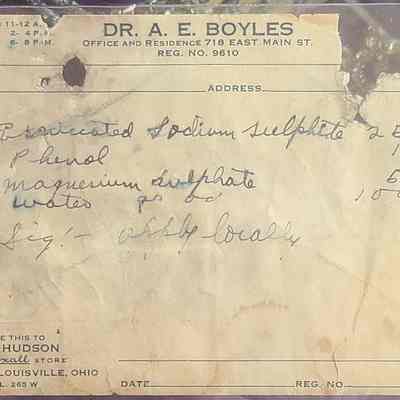 11-12 A.
2- 4 P.F.
6- 8 P.M.
DR. A. E. BOYLES
OFFICE AND RESIDENCE 718 EAST MAIN ST.
REG. NO. 9610
ADDRESS
Exsiccated Sodium Sulphite 2
Phenol 1
Magnesium Sulphate
Water 10
Sig:- apply locally
E THIS TO
HUDSON
Rexall STORE
LOUISVILLE, OHIO
L. 265 W
DATE REG. NO.